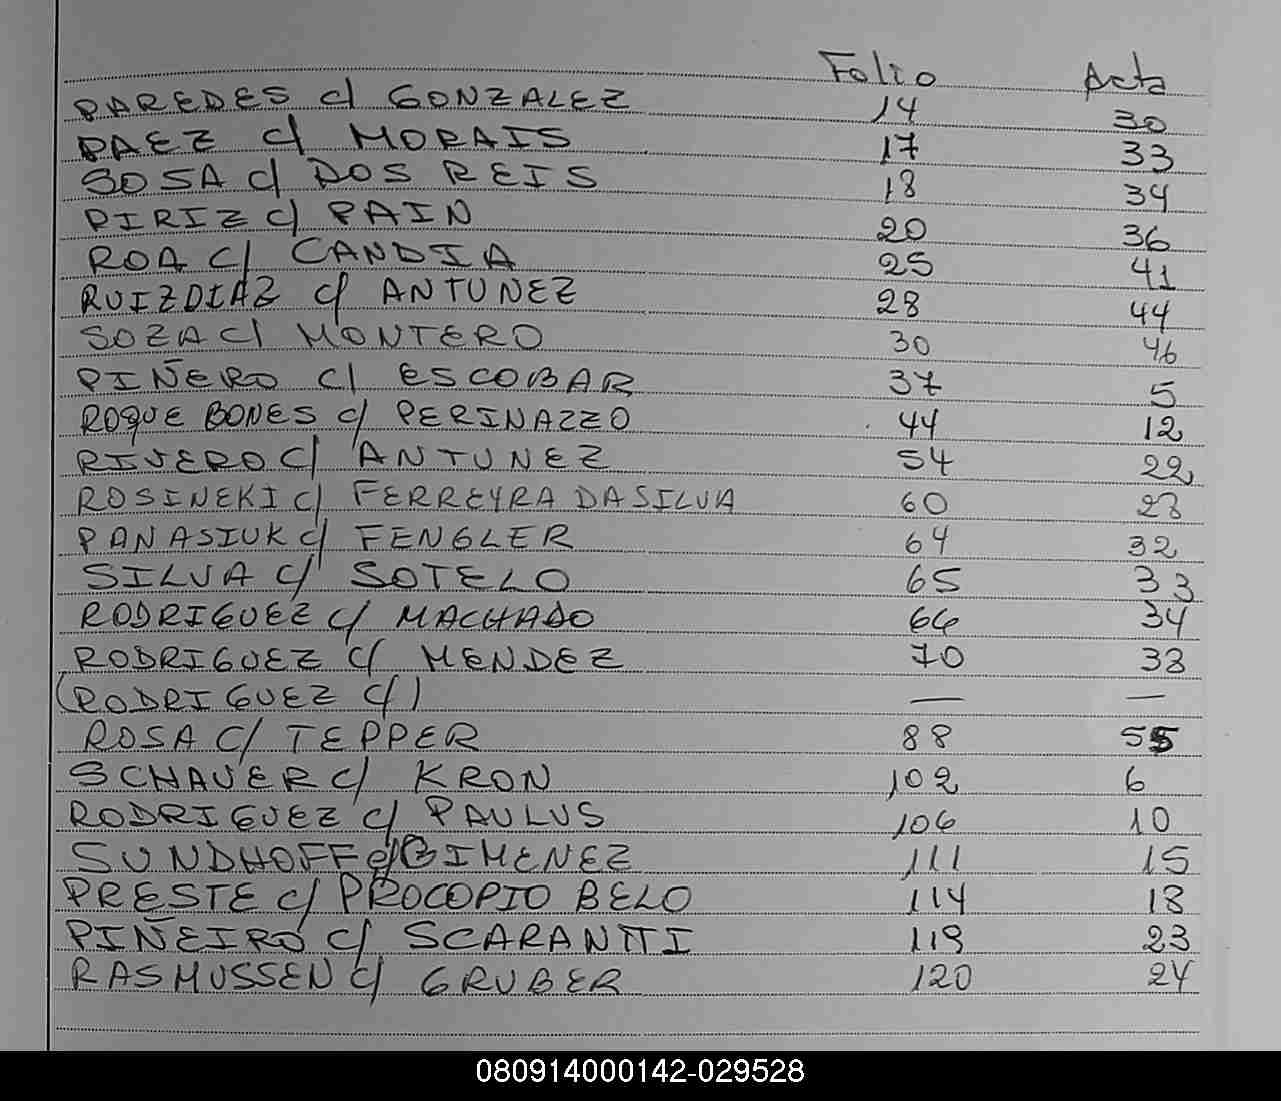 Folio Acta
PAREDES c/ GONZALEZ 14 30
PAEZ c/ MORAIS 17 33
SOSA c/ DOS REIS 18 34
PIRIZ c/ PAIN 20 36
ROA c/ CANDIA 25 41
RUIZDIAZ c/ ANTUNEZ 28 44
SOZA c/ MONTERO 30 46
PIÑERO c/ ESCOBAR 37 5
ROQUE BONES c/ PERINAZZO 44 12
RIVERO c/ ANTUNEZ 54 22
ROSINEKI c/ FERREYRA DASILVA 60 28
PANASIUK c/ FENGLER 64 32
SILVA c/ SOTELO 65 33
RODRIGUEZ c/ MACHADO 66 34
RODRIGUEZ c/ MENDEZ 70 38
(RODRIGUEZ c/) — —
ROSA c/ TEPPER 88 55
SCHAVER c/ KRON 102 6
RODRIGUEZ c/ PAULUS 106 10
SUNDHOFF c/ GIMENEZ 111 15
PRESTE c/ PROCOPIO BELO 114 18
PIÑEIRO c/ SCARANTTI 119 23
RASMUSSEN c/ GRUBER 120 24
080914000142-029528